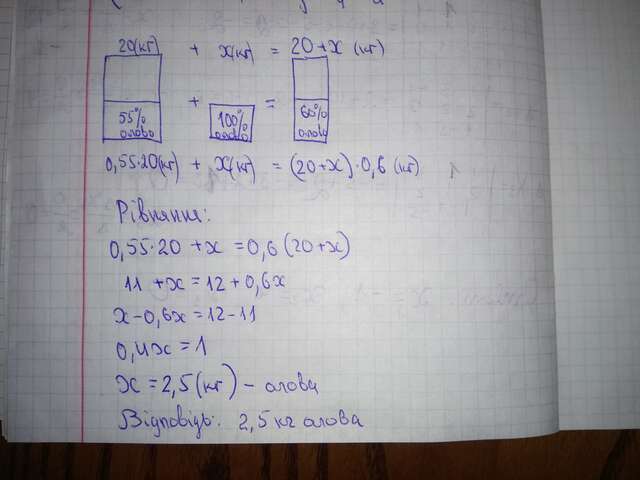 20(кг) + x(кг) = 20+x (кг)
55% олова + 100% олово = 60% олова
0,55·20(кг) + x(кг) = (20+x)·0,6 (кг)
Рівняння:
0,55·20 + x = 0,6(20+x)
11 + x = 12 + 0,6x
x - 0,6x = 12 - 11
0,4x = 1
x = 2,5 (кг) - олова
Відповідь: 2,5 кг олова